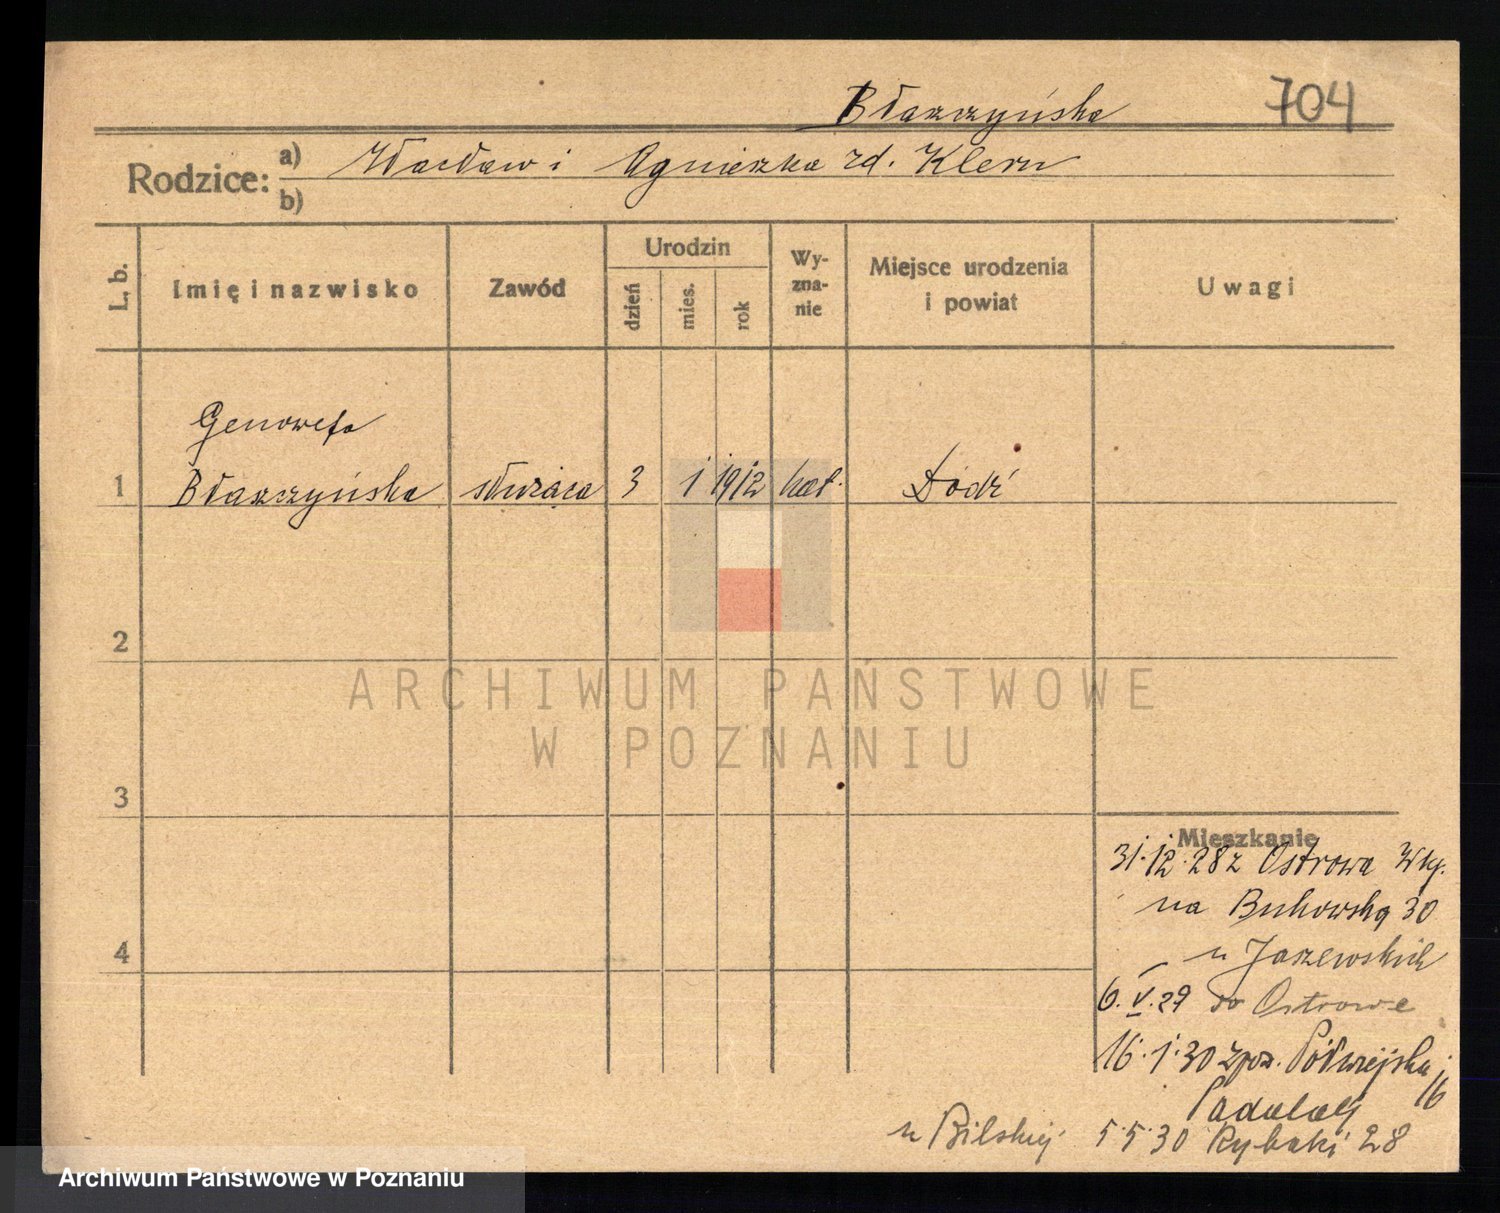 Błaszczyńska 704
Rodzice: a) Wacław i Agnieszka zd. Klern
b)
L. b. Imię i nazwisko Zawód Urodzin dzień mies. rok Wyznanie Miejsce urodzenia i powiat Uwagi
Genowefa
1 Błaszczyńska służąca 3 1 1912 kat. Łódź
2
ARCHIWUM PAŃSTWOWE
W POZNANIU
3
Mieszkanie
31.12.28 z Ostrowa Wlp.
na Bukowską 30
u Jaszewskich
4
6.V.29 do Ostrowa
16.1.30 Półwiejska 16
u Bilskiej 5.5.30 Rybaki 28
Archiwum Państwowe w Poznaniu